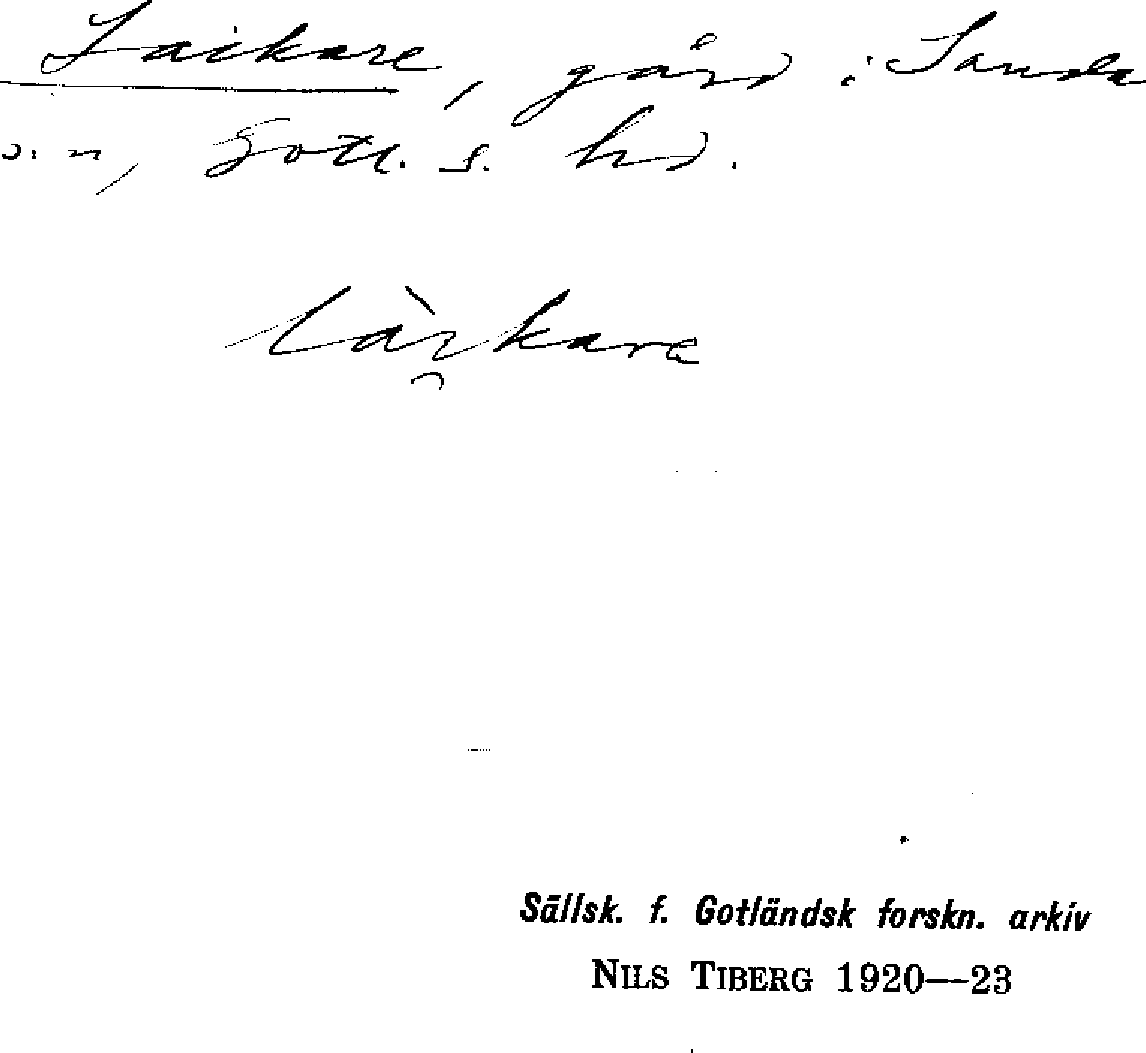 Laikare, gård i Sanda
s:n, Gotl. s. hd.
làı̯kare
Sällsk. f. Gotländsk forskn. arkiv
NILS TIBERG 1920—23